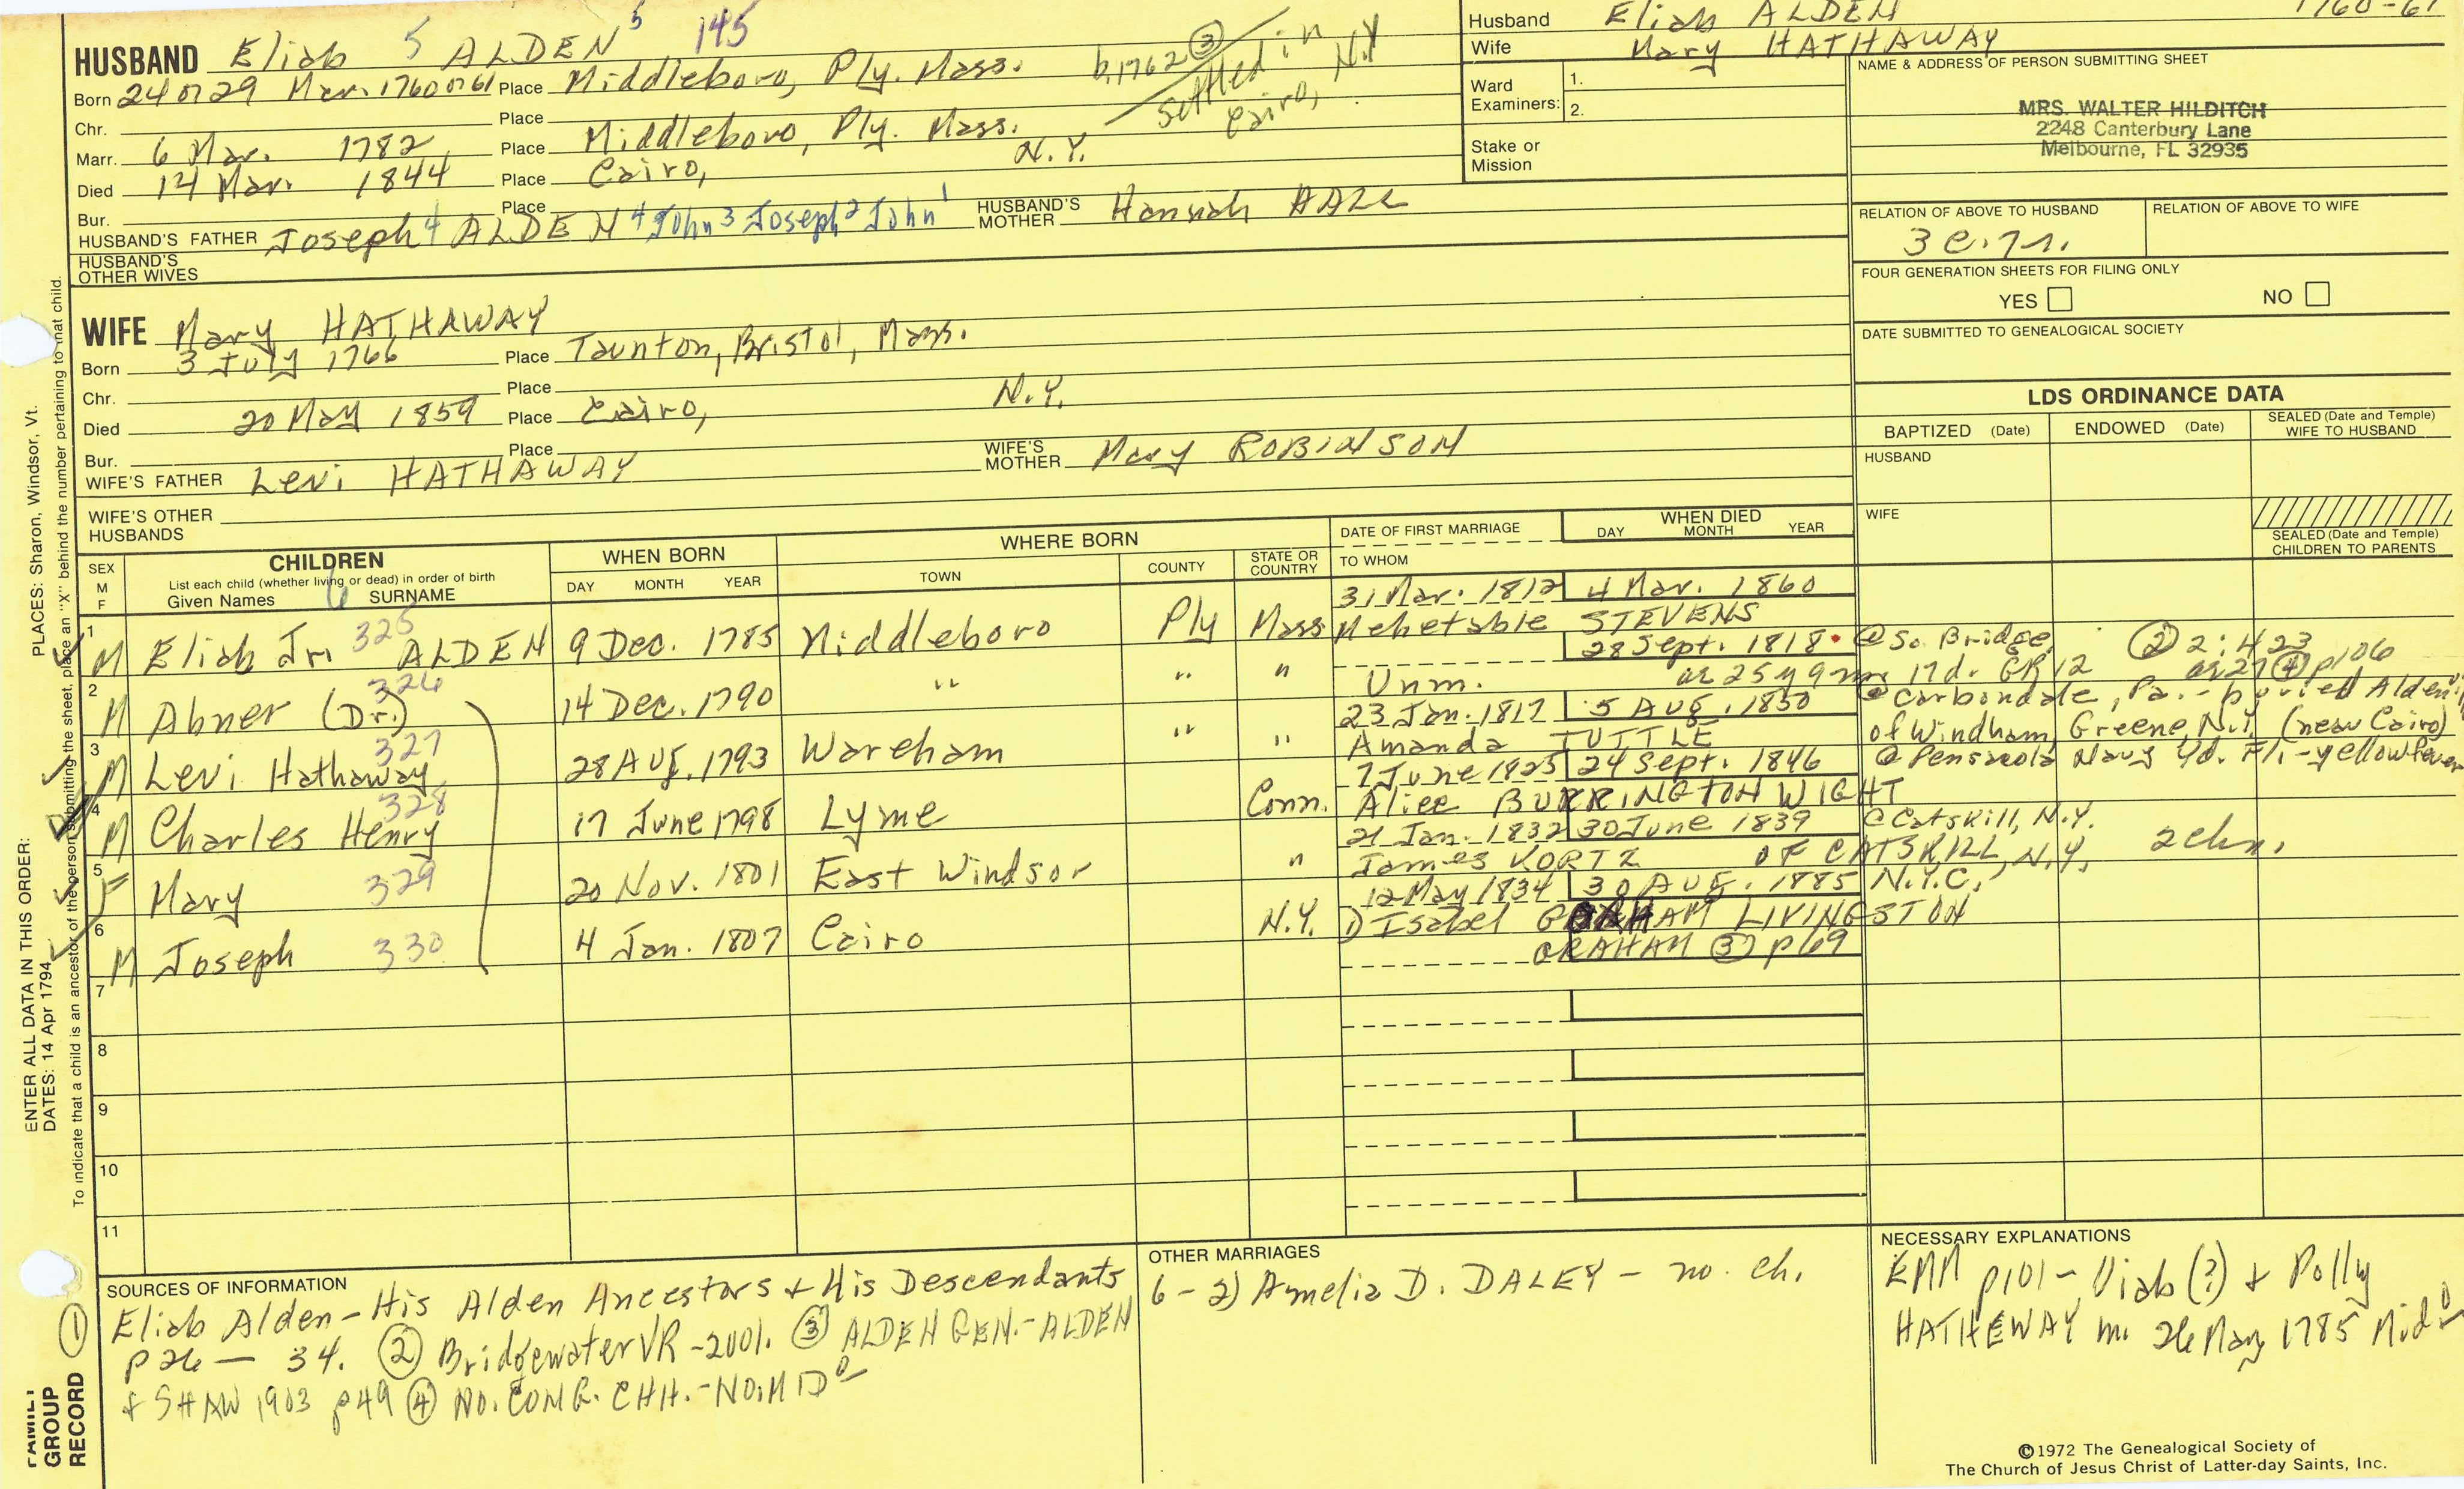 HUSBAND Eliab 5 ALDEN 5 145
Born 24 or 29 Mar. 1760 or 61 Place Middleboro, Ply. Mass. b. 1762 ③ settled in Cairo, N.Y
Chr. Place
Marr. 6 Mar. 1782 Place Middleboro, Ply. Mass.
Died 14 Mar. 1844 Place Cairo, N.Y.
Bur. Place
HUSBAND'S FATHER Joseph 4 ALDEN 4 John 3 Joseph 2 John 1 HUSBAND'S MOTHER Hannah HALL
HUSBAND'S OTHER WIVES
WIFE Mary HATHAWAY
Born 3 July 1766 Place Taunton, Bristol, Mass.
Chr. Place
Died 20 May 1859 Place Cairo, N.Y.
Bur. Place
WIFE'S FATHER Levi HATHAWAY WIFE'S MOTHER Mary ROBINSON
WIFE'S OTHER HUSBANDS
Husband Eliab ALDEN 1760-61
Wife Mary HATHAWAY
Ward Examiners: 1.
2.
Stake or Mission
NAME & ADDRESS OF PERSON SUBMITTING SHEET
MRS. WALTER HILDITCH
2248 Canterbury Lane
Melbourne, FL 32935
RELATION OF ABOVE TO HUSBAND RELATION OF ABOVE TO WIFE
FOUR GENERATION SHEETS FOR FILING ONLY
YES NO
DATE SUBMITTED TO GENEALOGICAL SOCIETY
LDS ORDINANCE DATA
BAPTIZED (Date) ENDOWED (Date) SEALED (Date and Temple) WIFE TO HUSBAND
HUSBAND
WIFE
SEALED (Date and Temple) CHILDREN TO PARENTS
SEX M F
CHILDREN
List each child (whether living or dead) in order of birth
Given Names 6 SURNAME
WHEN BORN
DAY MONTH YEAR
WHERE BORN
TOWN COUNTY STATE OR COUNTRY
DATE OF FIRST MARRIAGE
TO WHOM
WHEN DIED
DAY MONTH YEAR
31 Mar. 1812 4 Mar. 1860
1 M Eliab Jr. 325 ALDEN 9 Dec. 1785 Middleboro Ply Mass Mehetable STEVENS
28 Sept. 1818 @ So. Bridge ② 2:423
2 M Abner (Dr.) 326 14 Dec. 1790 " " " Unm. ae 25 y 9 m 17 d. GR 12 ae 27 ④ p106
23 Jan. 1817 5 Aug. 1850 @ Carbondale, Pa. - buried Alden
3 M Levi Hathaway 327 28 Aug. 1793 Wareham " " Amanda TUTTLE of Windham, Greene, N.Y. (near Cairo)
7 June 1825 24 Sept. 1846 @ Pensacola Navy Yd. Fl. - yellow fever
4 M Charles Henry 328 17 June 1798 Lyme Conn. Alice BURRINGTON WIGHT
21 Jan. 1832 30 June 1839 @ Catskill, N.Y.
5 F Mary 329 20 Nov. 1801 East Windsor " James KORTZ OF CATSKILL, N.Y. 2 chn.
12 May 1834 30 Aug. 1885 N.Y.C.
6 M Joseph 330 4 Jan. 1807 Cairo N.Y. 1) Isabel GRAHAM LIVINGSTON
GRAHAM ③ p69
7
8
9
10
11
SOURCES OF INFORMATION
① Eliab Alden - His Alden Ancestors + His Descendants
p 26 - 34. ② Bridgewater VR - 2001. ③ ALDEN GEN. - ALDEN
+ SHAW 1903 p49 ④ NO. CONG. CHH. - NO. MID
OTHER MARRIAGES
6 - 2) Amelia D. DALEY - no. ch.
NECESSARY EXPLANATIONS
p101 - Uiab (?) + Polly
HATHEWAY m. 26 May 1785 Mid
©1972 The Genealogical Society of
The Church of Jesus Christ of Latter-day Saints, Inc.
ENTER ALL DATA IN THIS ORDER:
DATES: 14 Apr 1794
PLACES: Sharon, Windsor, Vt.
To indicate that a child is an ancestor of the person submitting the sheet, place an "X" behind the number pertaining to that child.
FAMILY GROUP RECORD